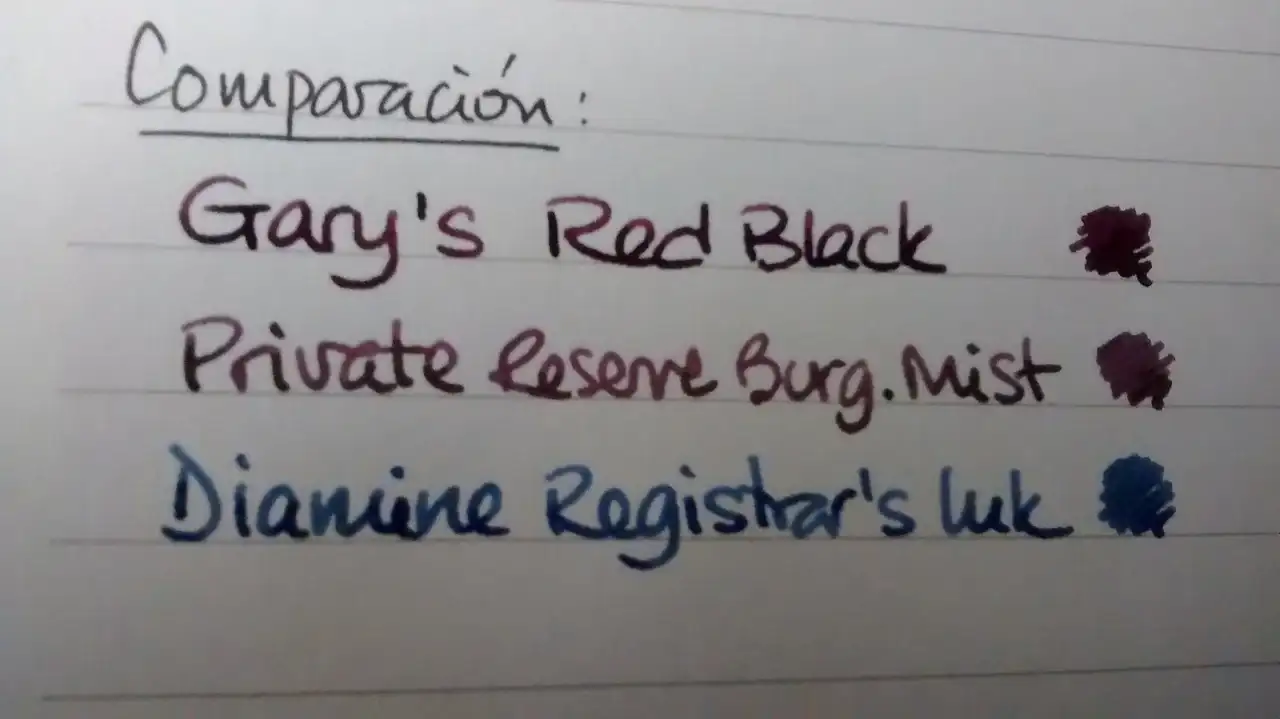 Comparación:
Gary's Red Black
Private Reserve Burg. Mist
Diamine Registrar's Ink